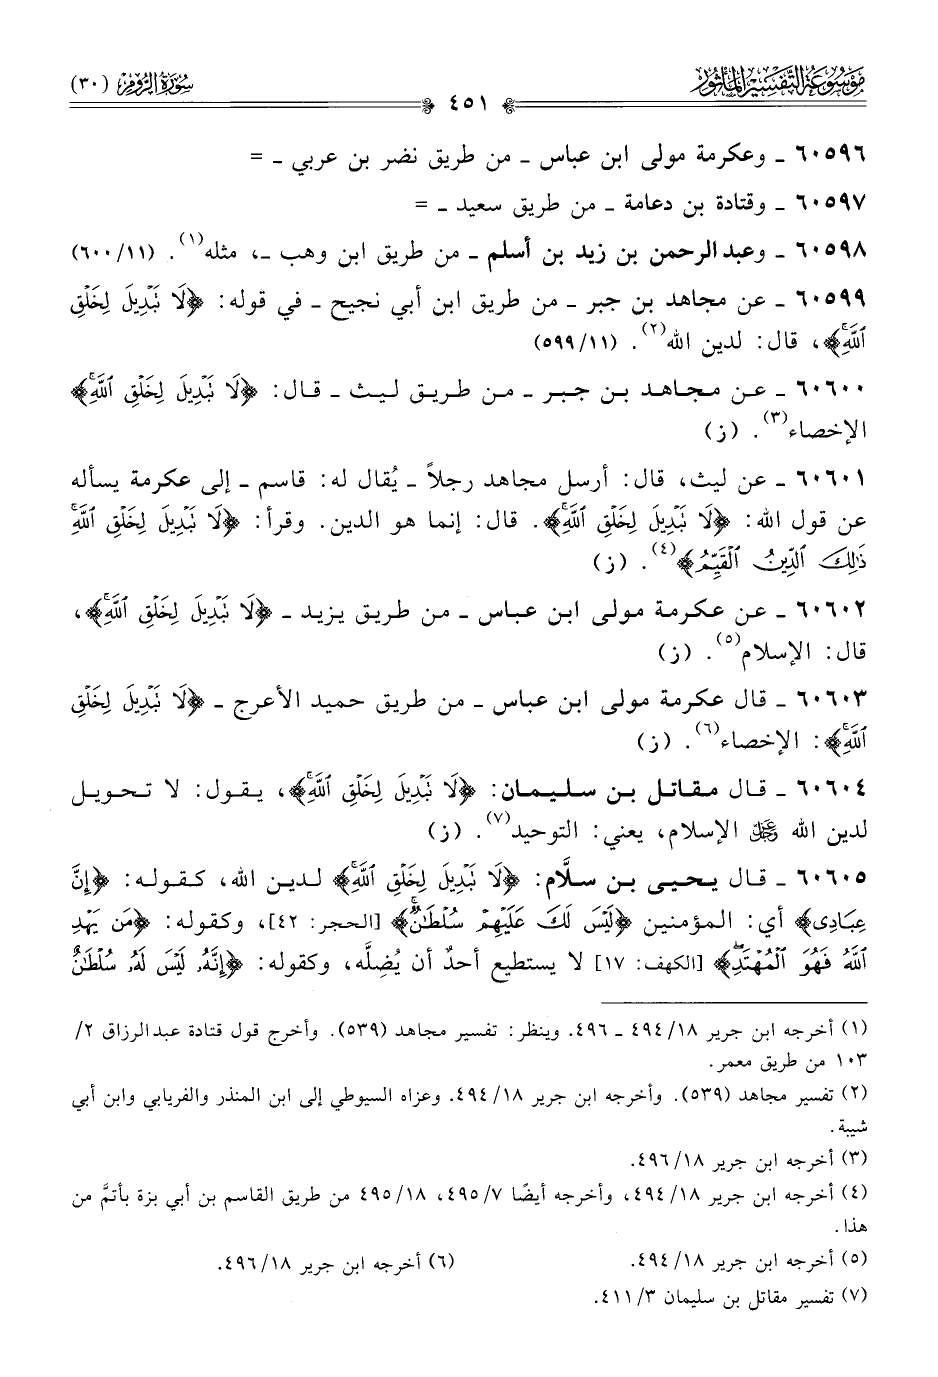 مَوْسُوعَةُ التَّفْسِيْرِ المَأْثُورِ
سُورَةُ الرُّومِ (٣٠)
٤٥١
٦٠٥٩٦ ـ وعكرمة مولى ابن عباس ـ من طريق نضر بن عربي ـ =
٦٠٥٩٧ ـ وقتادة بن دعامة ـ من طريق سعيد ـ =
٦٠٥٩٨ ـ وعبد الرحمن بن زيد بن أسلم ـ من طريق ابن وهب ـ، مثله(١). (١١/ ٦٠٠)
٦٠٥٩٩ ـ عن مجاهد بن جبر ـ من طريق ابن أبي نجيح ـ في قوله: ﴿لَا تَبْدِيلَ لِخَلْقِ
ٱللَّهِۚ﴾، قال: لدين الله(٢). (١١/ ٥٩٩)
٦٠٦٠٠ ـ عن مجاهد بن جبر ـ من طريق ليث ـ قال: ﴿لَا تَبْدِيلَ لِخَلْقِ ٱللَّهِۚ﴾
الإخصاء(٣). (ز)
٦٠٦٠١ ـ عن ليث، قال: أرسل مجاهد رجلاً ـ يُقال له: قاسم ـ إلى عكرمة يسأله
عن قول الله: ﴿لَا تَبْدِيلَ لِخَلْقِ ٱللَّهِۚ﴾. قال: إنما هو الدين. وقرأ: ﴿لَا تَبْدِيلَ لِخَلْقِ ٱللَّهِۚ
ذَٰلِكَ ٱلدِّينُ ٱلْقَيِّمُ﴾(٤). (ز)
٦٠٦٠٢ ـ عن عكرمة مولى ابن عباس ـ من طريق يزيد ـ ﴿لَا تَبْدِيلَ لِخَلْقِ ٱللَّهِۚ﴾،
قال: الإسلام(٥). (ز)
٦٠٦٠٣ ـ قال عكرمة مولى ابن عباس ـ من طريق حميد الأعرج ـ ﴿لَا تَبْدِيلَ لِخَلْقِ
ٱللَّهِۚ﴾: الإخصاء(٦). (ز)
٦٠٦٠٤ ـ قال مقاتل بن سليمان: ﴿لَا تَبْدِيلَ لِخَلْقِ ٱللَّهِۚ﴾، يقول: لا تحويل
لدين الله ﷿ الإسلام، يعني: التوحيد(٧). (ز)
٦٠٦٠٥ ـ قال يحيى بن سلَّام: ﴿لَا تَبْدِيلَ لِخَلْقِ ٱللَّهِۚ﴾ لدين الله، كقوله: ﴿إِنَّ
عِبَادِى﴾ أي: المؤمنين ﴿لَيْسَ لَكَ عَلَيْهِمْ سُلْطَٰنٌۚ﴾ [الحجر: ٤٢]، وكقوله: ﴿مَن يَهْدِ
ٱللَّهُ فَهُوَ ٱلْمُهْتَدِۖ﴾ [الكهف: ١٧] لا يستطيع أحدٌ أن يُضِلَّه، وكقوله: ﴿إِنَّهُۥ لَيْسَ لَهُۥ سُلْطَٰنٌ
(١) أخرجه ابن جرير ١٨/ ٤٩٤ ـ ٤٩٦. وينظر: تفسير مجاهد (٥٣٩). وأخرج قول قتادة عبد الرزاق ٢/
١٠٣ من طريق معمر.
(٢) تفسير مجاهد (٥٣٩). وأخرجه ابن جرير ١٨/ ٤٩٤. وعزاه السيوطي إلى ابن المنذر والفريابي وابن أبي
شيبة.
(٣) أخرجه ابن جرير ١٨/ ٤٩٦.
(٤) أخرجه ابن جرير ١٨/ ٤٩٤، وأخرجه أيضًا ٧/ ٤٩٥، ١٨/ ٤٩٥ من طريق القاسم بن أبي بزة بأتمَّ من
هذا.
(٥) أخرجه ابن جرير ١٨/ ٤٩٤.
(٦) أخرجه ابن جرير ١٨/ ٤٩٦.
(٧) تفسير مقاتل بن سليمان ٣/ ٤١١.